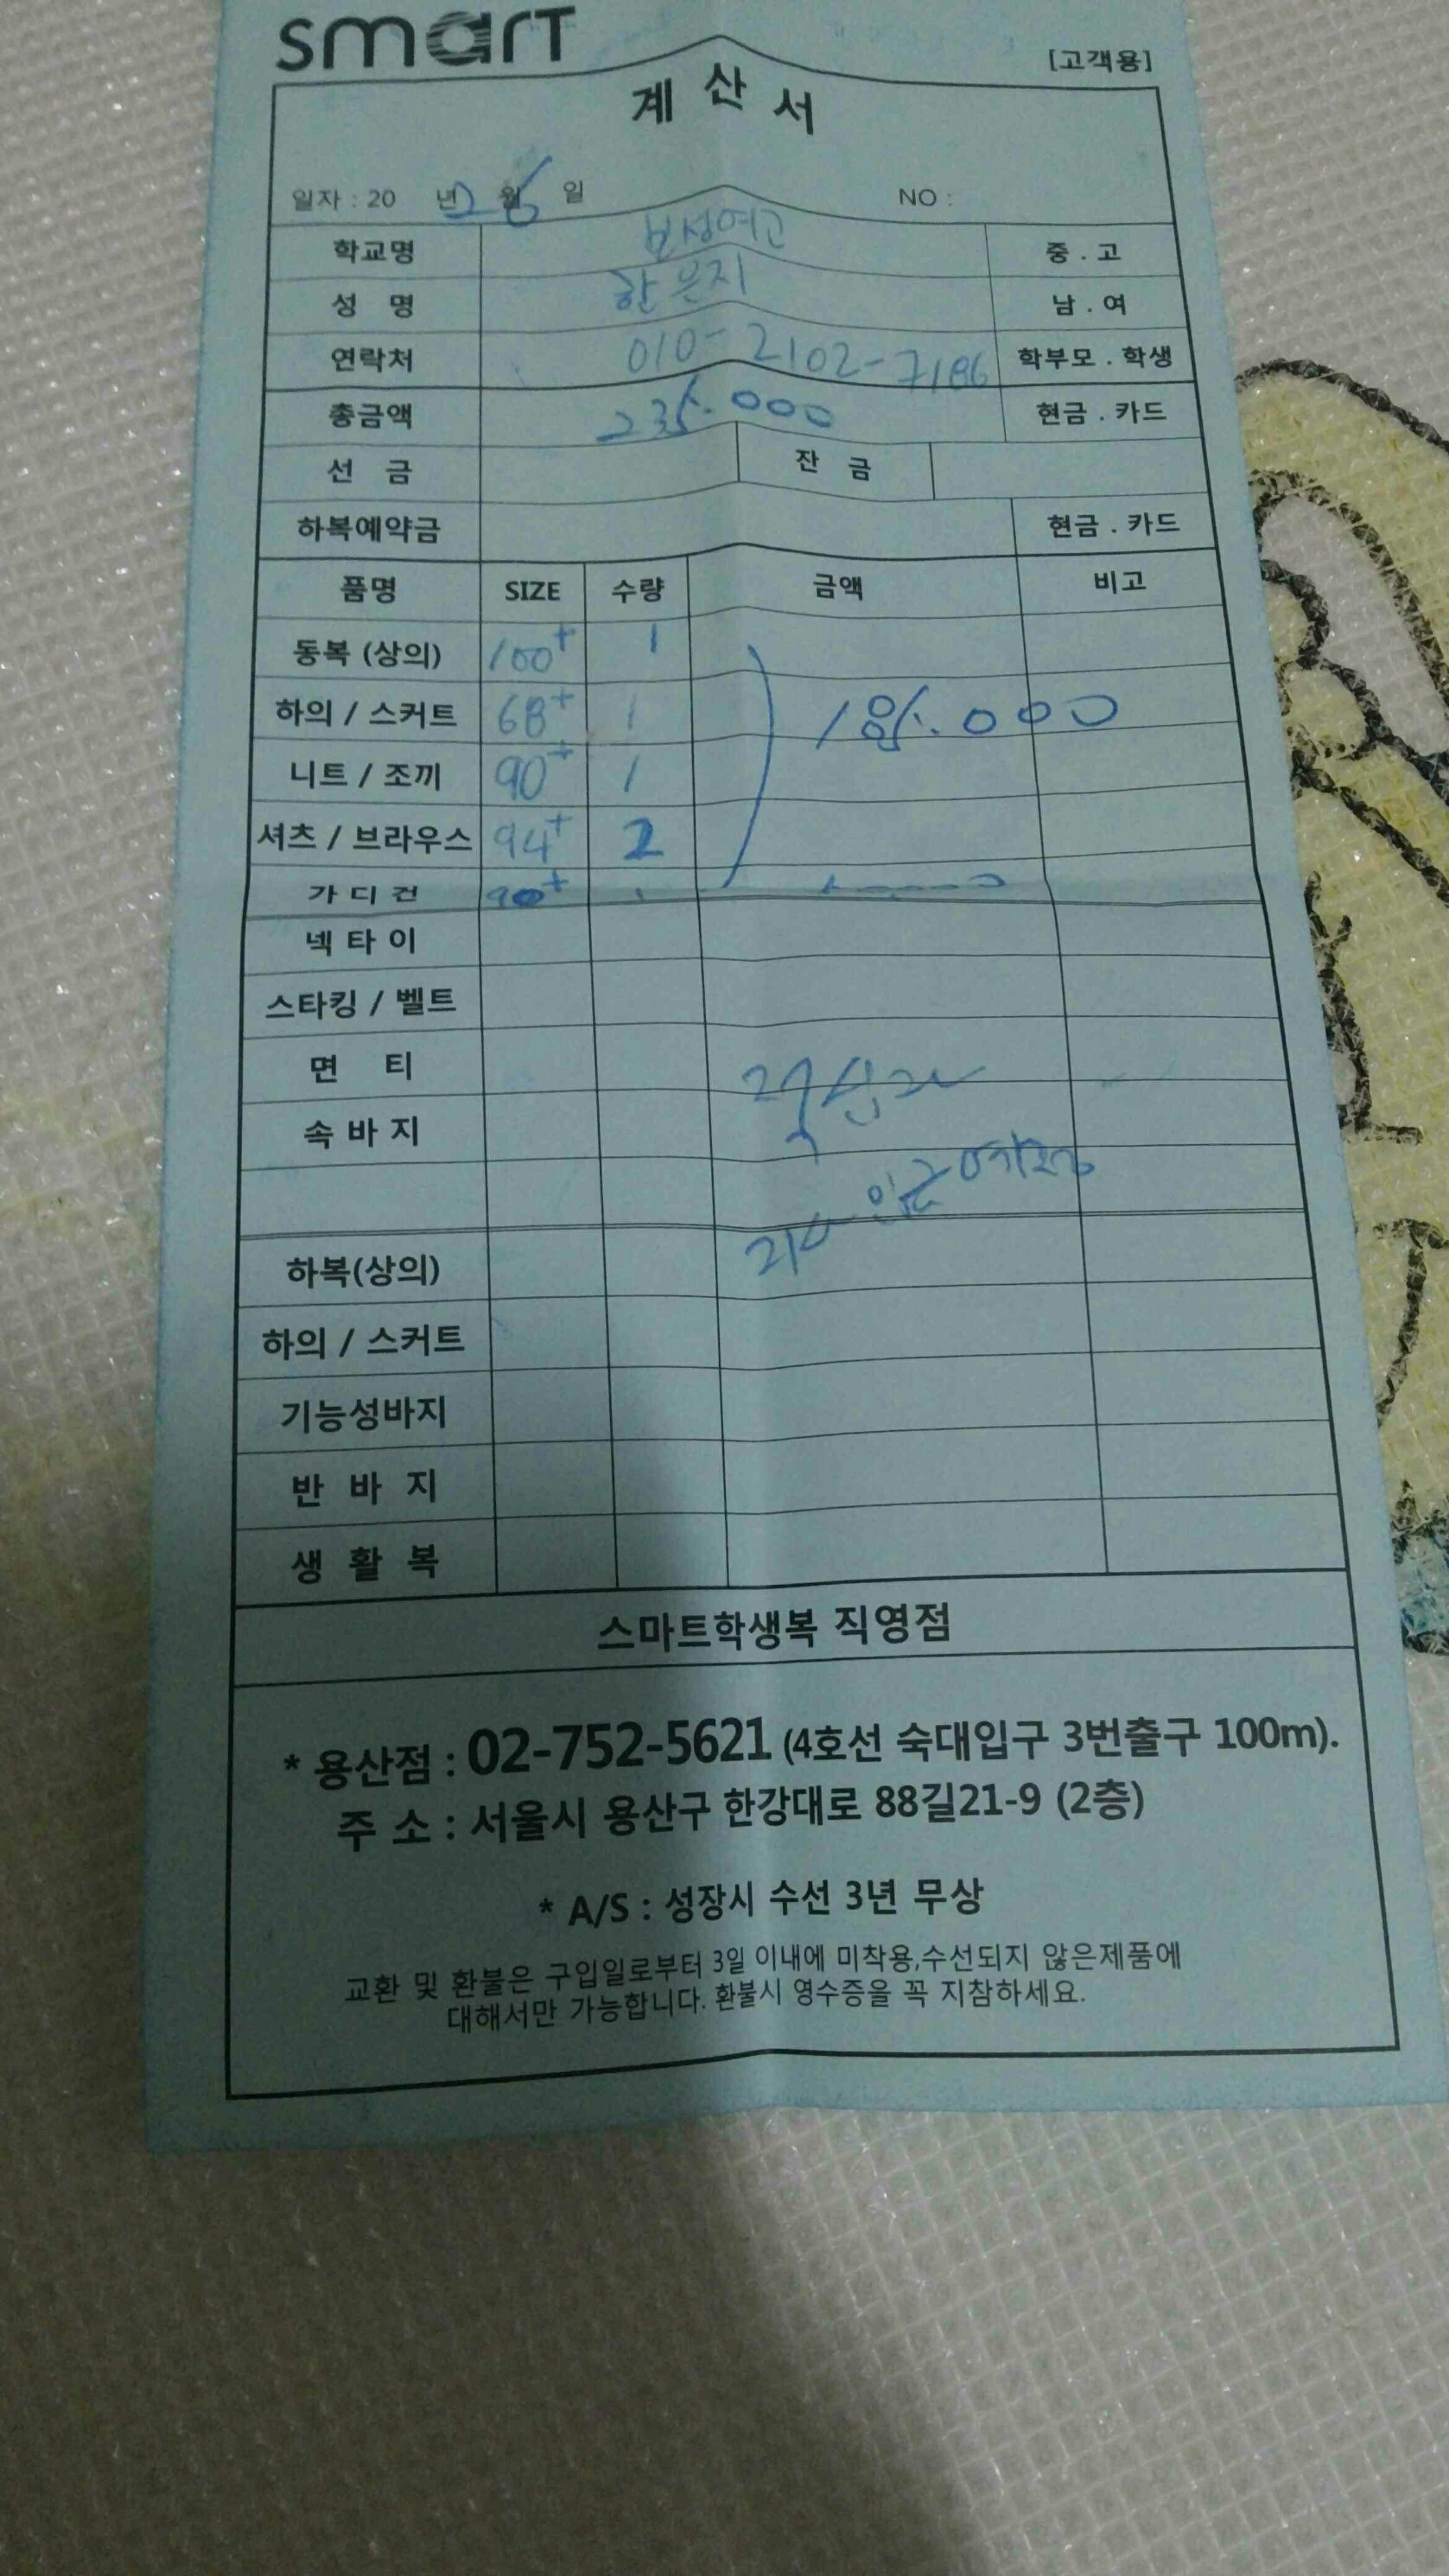 smart
[고객용]
계산서
일자 : 20 년 2 월 6 일 NO :
학교명 보성여고 중 . 고
성 명 한은지 남 . 여
연락처 010-2102-7186 학부모 . 학생
총금액 235.000 현금 . 카드
선 금 잔 금
하복예약금 현금 . 카드
품명 SIZE 수량 금액 비고
동복 (상의) 100+ 1
하의 / 스커트 68+ 1
니트 / 조끼 90+ 1
셔츠 / 브라우스 94+ 2
가디건 90+
넥타이
스타킹 / 벨트
면 티
속바지
하복(상의)
하의 / 스커트
기능성바지
반 바 지
생 활 복
스마트학생복 직영점
* 용산점 : 02-752-5621 (4호선 숙대입구 3번출구 100m).
주 소 : 서울시 용산구 한강대로 88길21-9 (2층)
* A/S : 성장시 수선 3년 무상
교환 및 환불은 구입일로부터 3일 이내에 미착용,수선되지 않은제품에
대해서만 가능합니다. 환불시 영수증을 꼭 지참하세요.